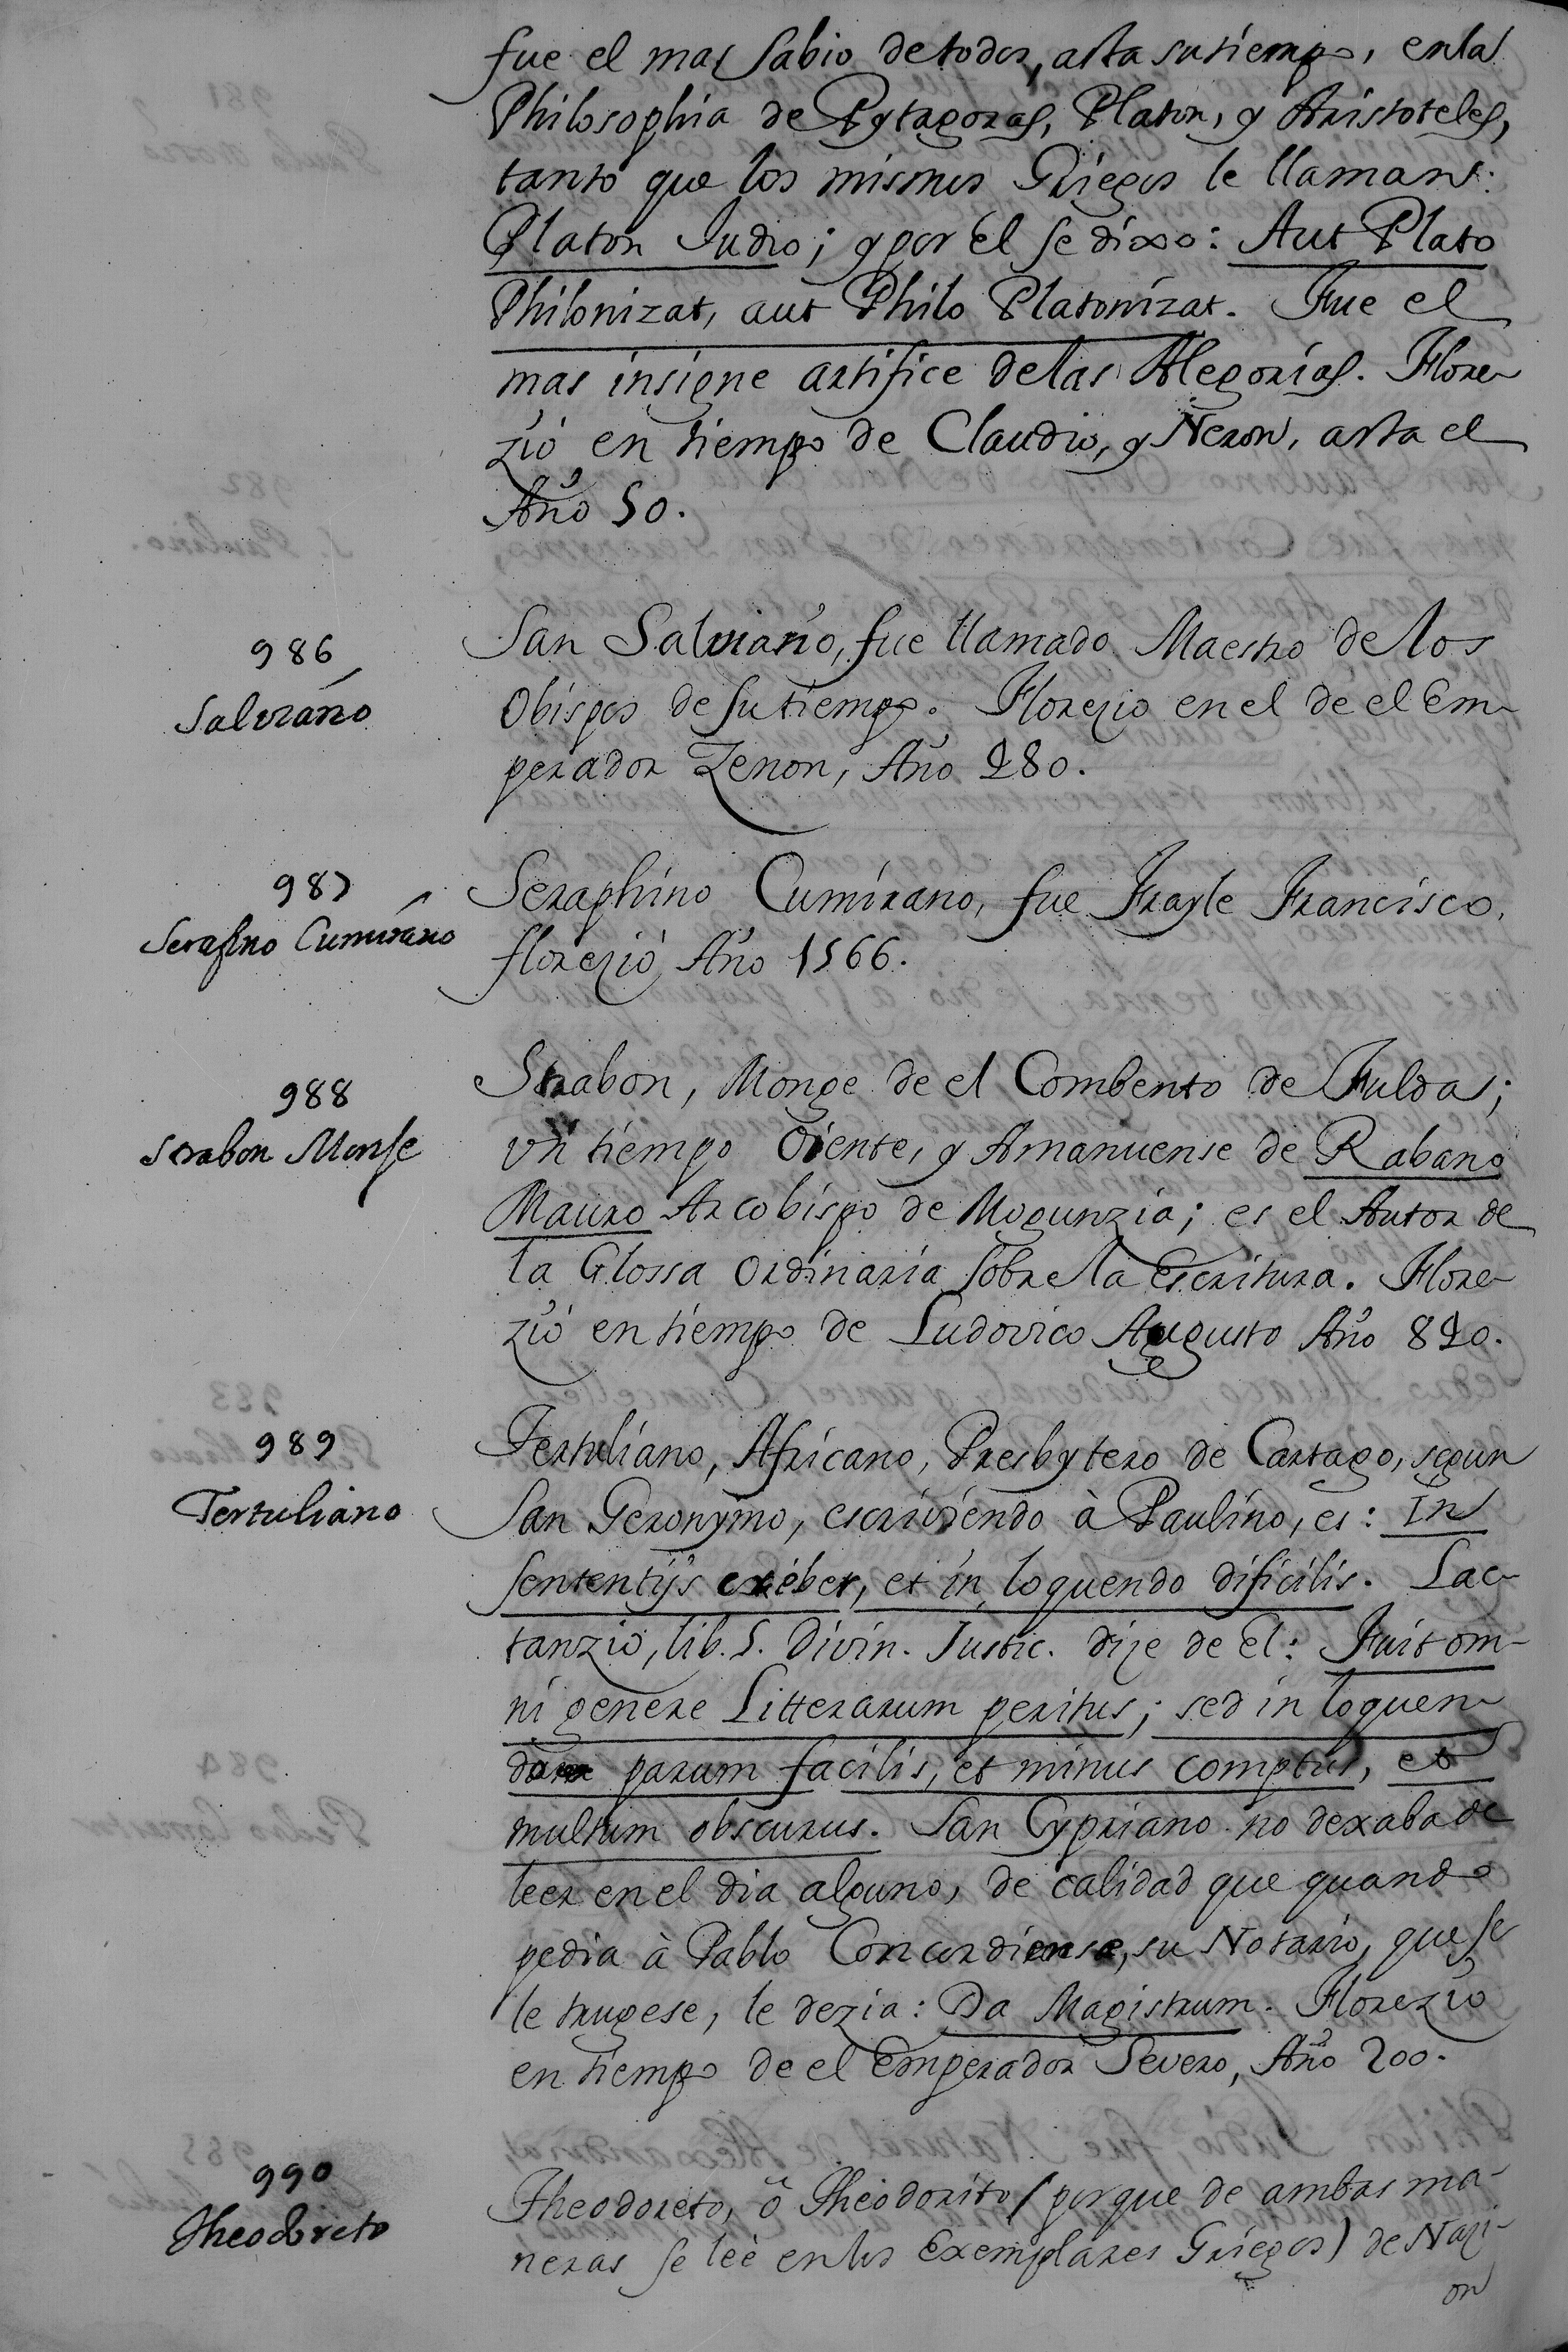 fue el mas sabio de todos, asta su tiempo, en la
Philosophia de Pytagoras, Platon, y Aristoteles,
tanto que los mismos Griegos le llaman:
Platon Judio; y por él se dixo: Aut Plato
Philonizat, aut Philo Platonizat. Fue el
mas insigne artifice de las Alegorias. Flore-
zió en tiempo de Claudio, y Neron, asta el
Año 50.
986
Salviano
San Salviano, fue llamado Maestro de los
Obispos de su tiempo. Florezio en el de el Em-
perador Zenon, Año 480.
987
Serafino Cumirano
Seraphino Cumirano, fue Frayle Francisco,
florezió Año 1566.
988
Strabon Monje
Strabon, Monge de el Combento de Fuldas;
vn tiempo Oiente, y Amanuense de Rabano
Mauro Arcobispo de Mogunzia; es el Autor de
la Glossa Ordinaria sobre la Escritura. Flore-
zió en tiempo de Ludovico Augusto Año 840.
989
Tertuliano
Tertuliano, Africano, Presbytero de Cartago, segun
San Geronymo, escriviendo à Paulino, es: In
sententijs creber, et in loquendo dificilis. Lac-
tanzio, lib. 5. Divin. Justic. dize de el: Fuit om-
ni genere Litterarum peritus; sed in loquen-
do parum facilis, et minus comptus, et
multum obscurus. San Cypriano no dexaba de
leer en el dia alguno, de calidad que quando
pedia à Pablo Concordiense, su Notario, que se
le trugese, le dezia: Da Magistrum. Florezio
en tiempo de el Emperador Severo, Año 200.
990
Theodoreto
Theodoreto, ò Theodorito (porque de ambas ma-
neras se leè en los Exemplares Griegos) de Nazi-
on